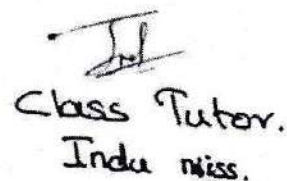 Class Tutor.
Indu miss.